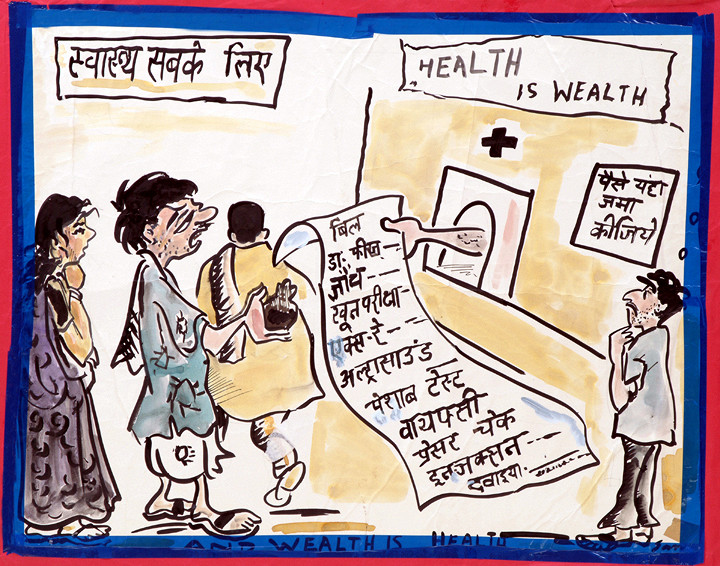 स्वास्थ्य सबके लिए
HEALTH
IS WEALTH
पैसे यहां
जमा
कीजिये
बिल
डा. फीस --
जाँच ---
खून परीक्षा --
एक्स-रे ---
अल्ट्रासाउंड
पेशाब टेस्ट
वायप्सी
प्रेसर चेक
इनजक्सन ---
दवाइया.
AND WEALTH IS HEALTH